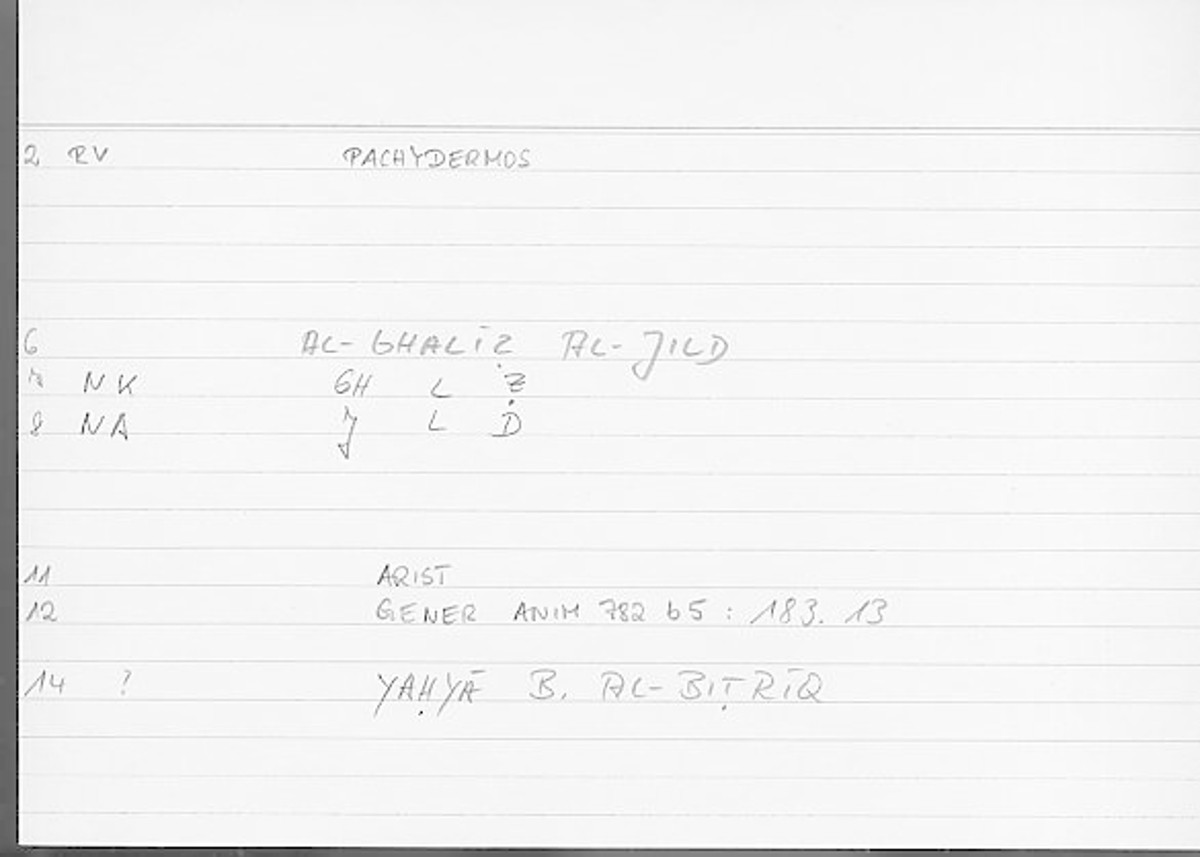 2 RV PACHYDERMOS
6 AL-GHALĪẒ AL-JILD
7 NK GH L Ẓ
8 NA J L D
11 ARIST
12 GENER ANIM 782 b5 : 183. 13
14 ? YAḤYĀ B. AL-BIṬRĪQ